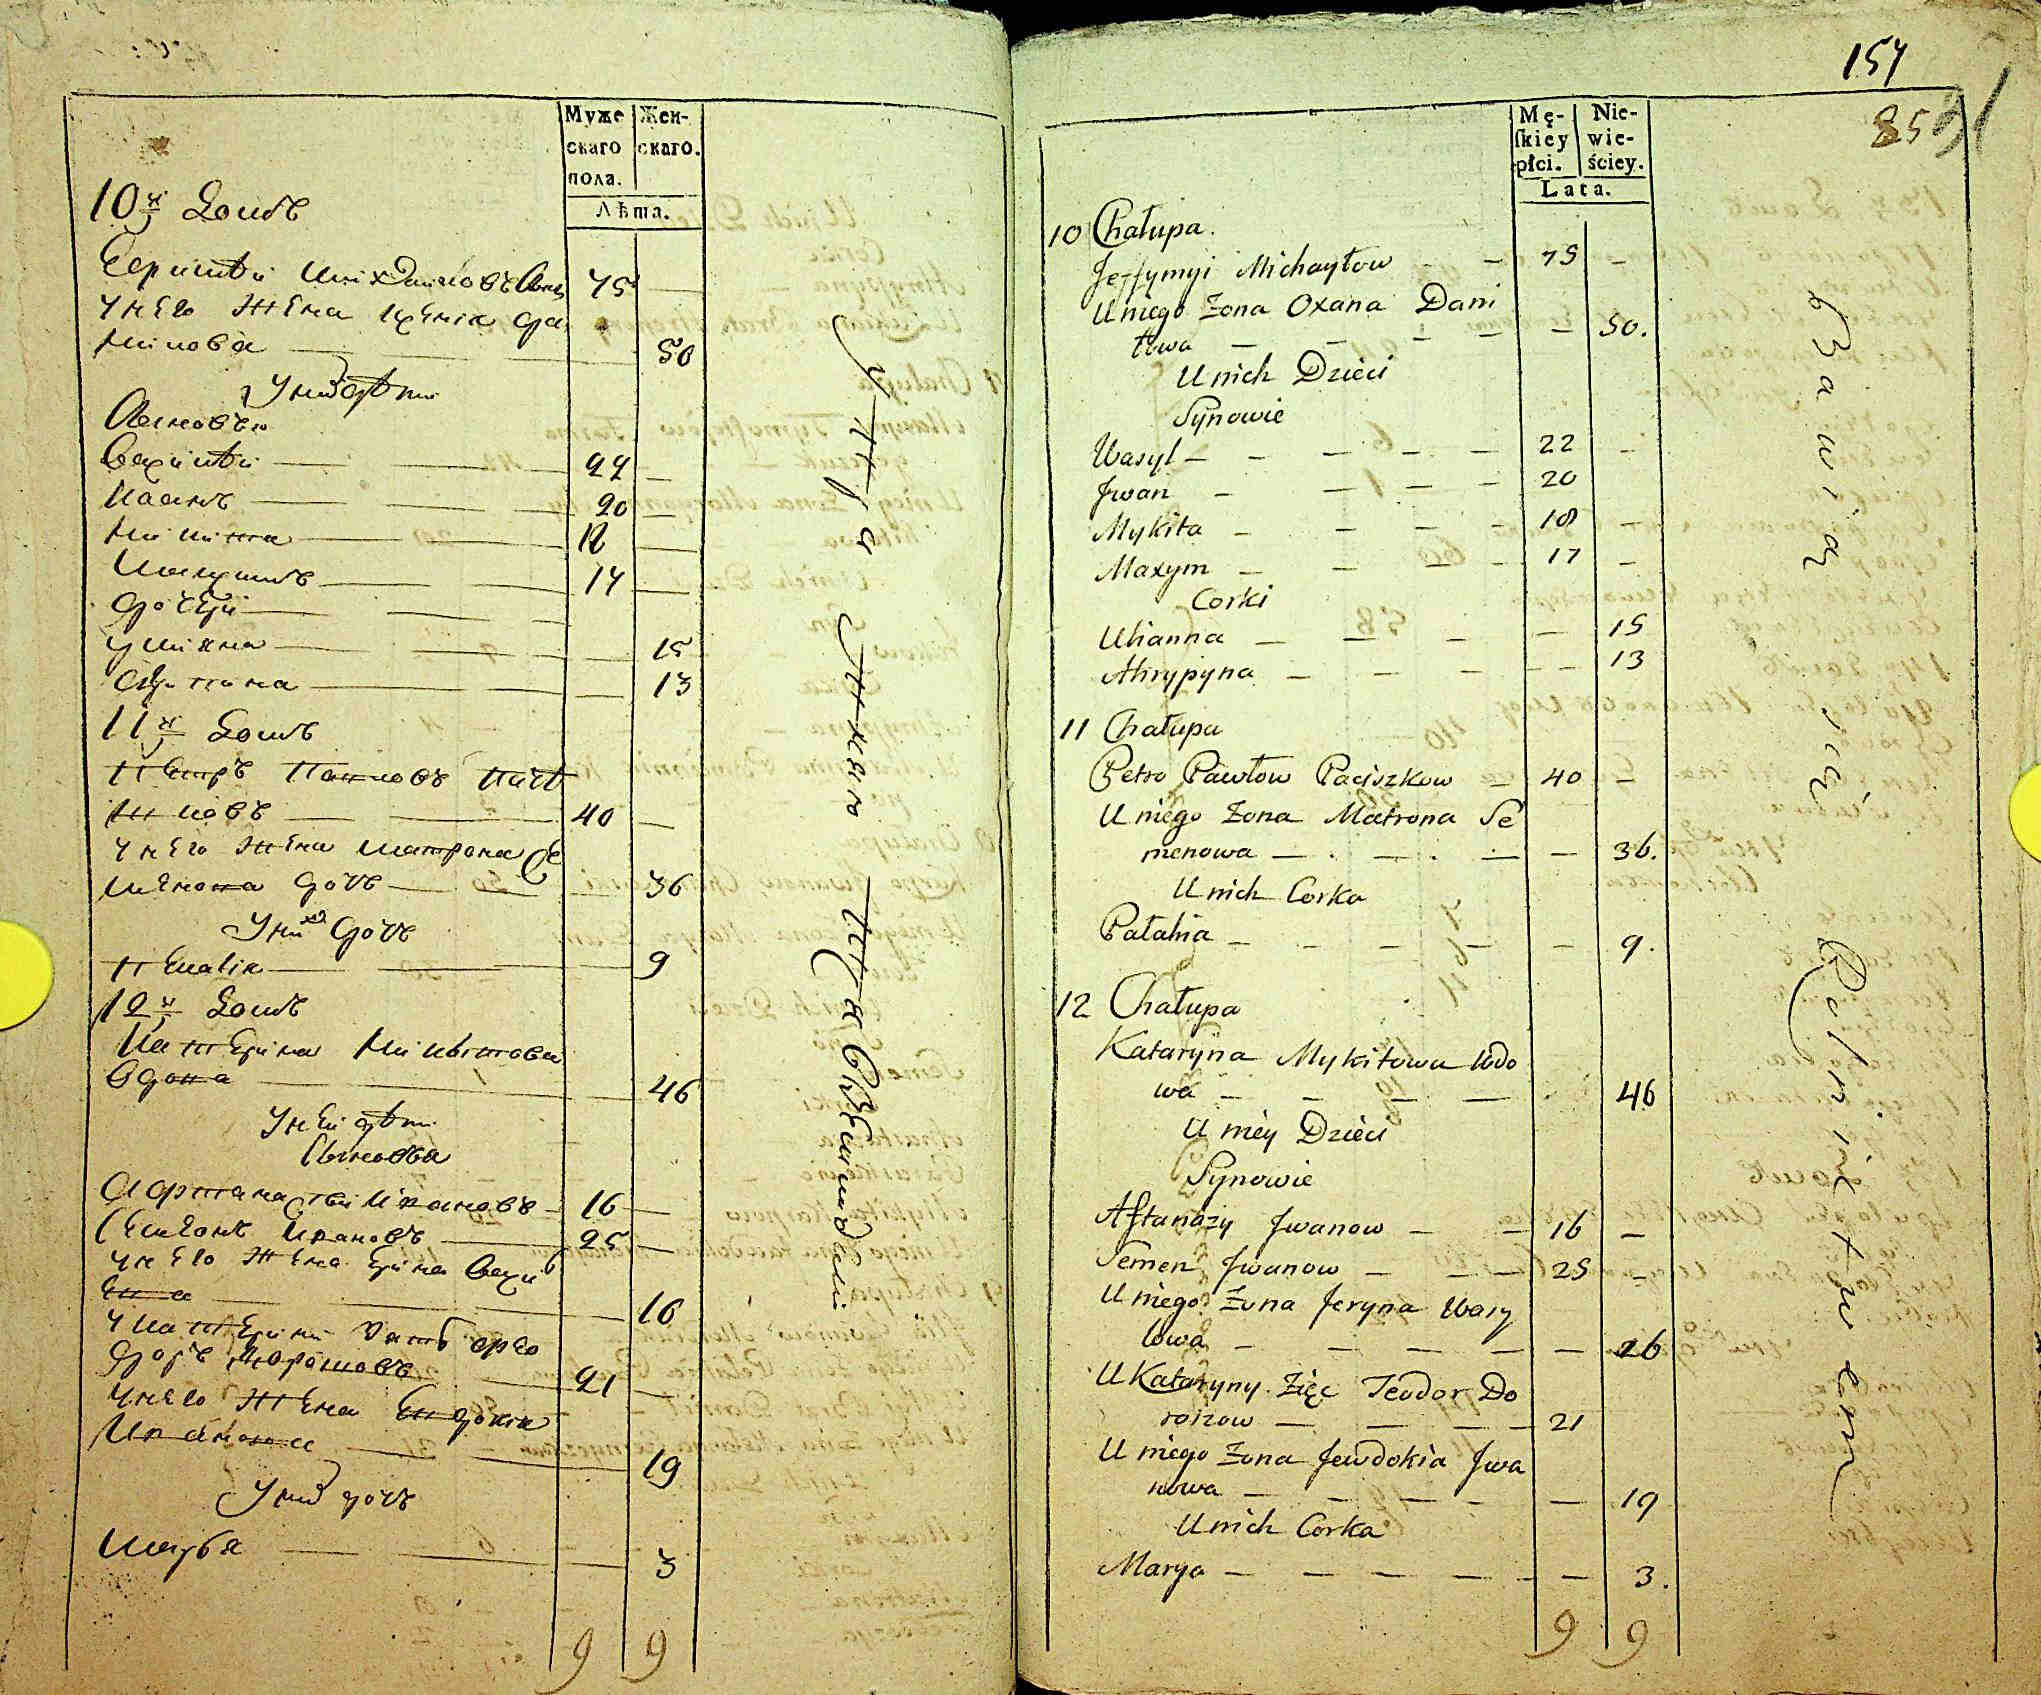 Муже скаго пола.
Жен-скаго.
Лѣта.
10й Домъ
75
У него жена
нилова 50
У них дѣти
Сыновья
Василій 22
Иванъ 20
Никита 18
Максимъ 17
Дочери
Улияна 15
13
11й Домъ
Петръ Павловъ
40
У него жена Матрона Се
менова дочь 36
У них дочь
Пелагія 9
12й Домъ
Катерина Никитова
вдова 46
У ней дѣти
Сыновья
Ивановъ 16
Семенъ Ивановъ 25
У него жена Ерина Васи
16
У Катерини зять Фео
доръ 21
У него жена Евдокия
Иванова 19
У них дочь
Марья 3
9 9
157
85
Mę-skiey płci.
Nie-wie-ściey.
Lata.
10 Chałupa.
Jeffymyi Michayłow 75
U niego Żona Oxana Dani
łowa 50.
U nich Dzieci
Synowie
Wasyl 22
Jwan 20
Mykita 18
Maxym 17
Corki
Ulianna 15
Ahrypyna 13
11 Chałupa
Petro Pawłow Paciszkow 40
U niego Żona Matrona Se
menowa 36.
U nich Corka
Pałahia 9.
12 Chałupa
Kataryna Mykitowa Wdo
wa 46
U niey Dzieci
Synowie
Aftanazy Jwanow 16
Semen Jwanow 25
U niego Żona Jeryna Wasy
lowa 26
U Kataryny Zięć Teodor Do
roszow 21
U niego Żona Jewdokia Jwa
nowa 19
U nich Corka
Marya 3.
9 9
Bawią się Rolnictwem